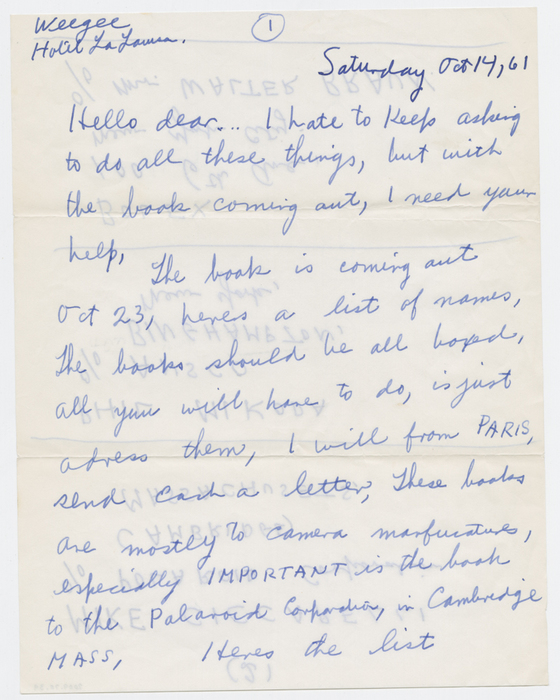 Weegee
Hotel La Louisa.
1
Saturday Oct 14, 61
Hello dear... I hate to keep asking
to do all these things, but with
the book coming out, I need your
help,
The book is coming out
Oct 23, heres a list of names,
The books should be all boxed,
all you will have to do, is just
adress them, I will from PARIS,
send each a letter, These books
are mostly to camera
especially IMPORTANT is the book
to the Polaroid Corporation, in Cambridge
MASS, Heres the list